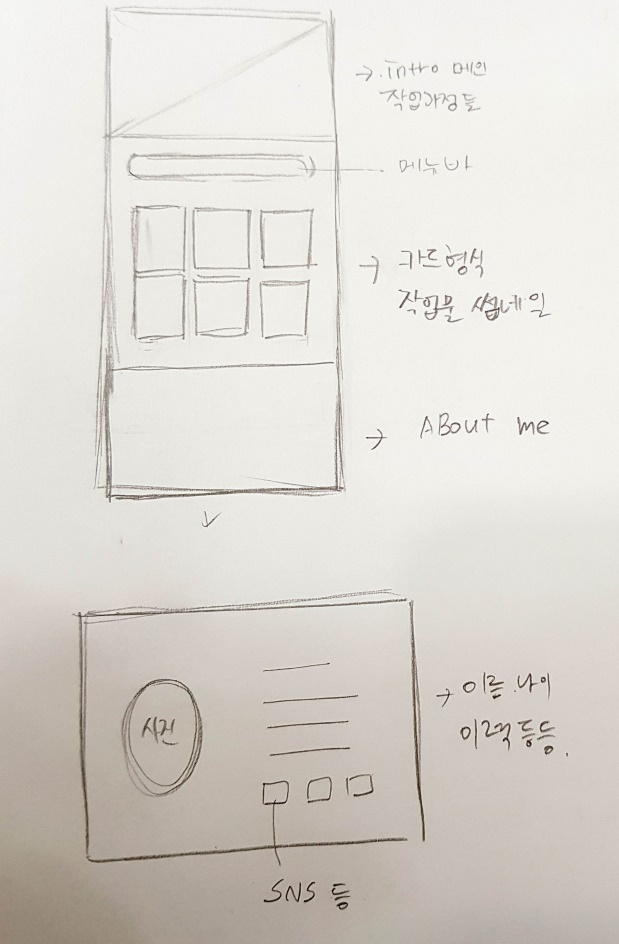 intro 메인
작업과정들
메뉴바
카드형식
작업물 썸네일
ABout me
사진
이름.나이
이력등등.
SNS 등